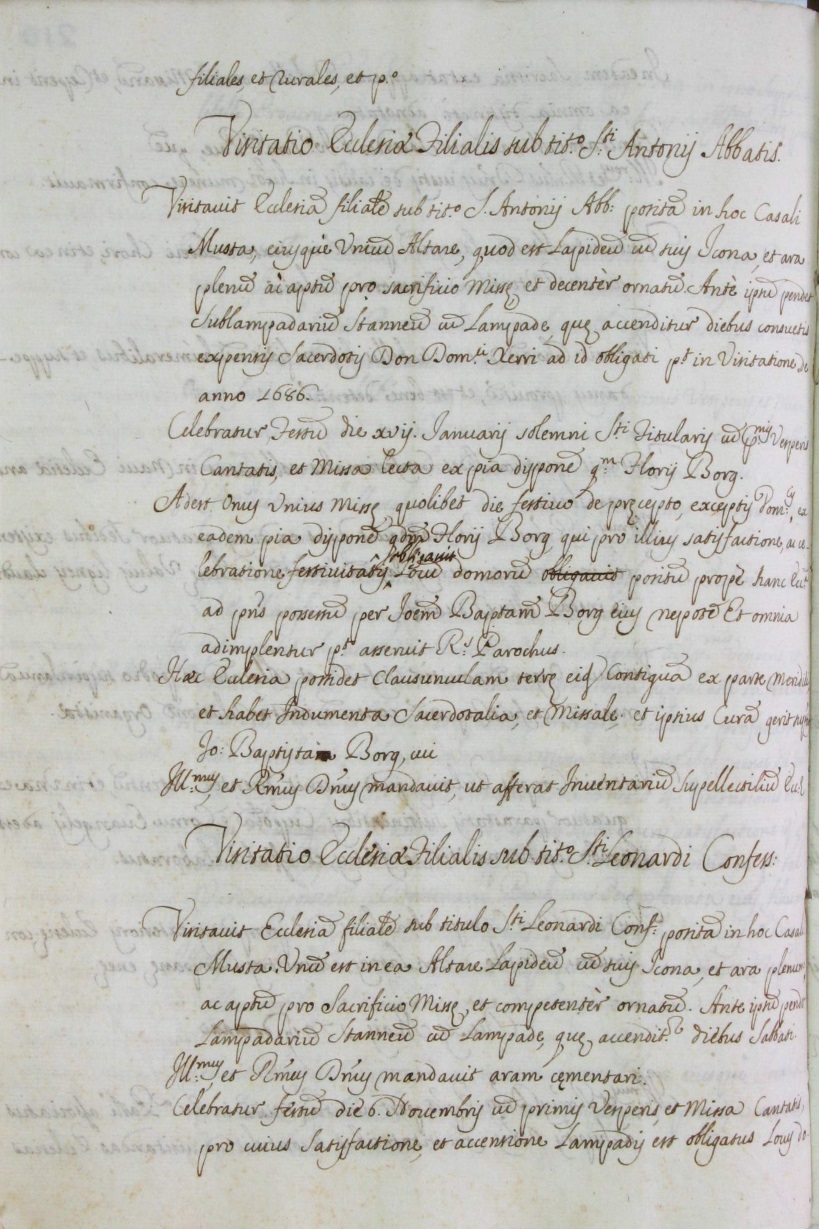 filiales, et rurales, et p.º
Visitatio Ecclesiæ Filialis sub tit.º S.ti Antonij Abbatis.
Visitavit Ecclesiã filialẽ sub tit.º S. Antonij Abb: positã in hoc Casali
Musta, eiusque Unicũ Altare, quod est Lapideũ cũ suis Icona, et ara
plenũ ac aptũ pro sacrificio Missę, et decentèr ornatũ. Antè ipsũ pendet
Sublampadariũ Stanneũ cũ Lampade, quę accenditur diebus consuetis
expensis Sacerdotis Don Dom.ci Xerri ad id obligati p.t in Visitatione de
anno 1686.
Celebratur Festũ die xvij. Januarij solemni S.ti Titularis cũ p.mis Vesperis
Cantatis, et Missa lecta ex pia disponẽ q.m Florij Borg.
Adest Onus Unius Missę quolibet die festivo de pręcepto, exceptis Dom.cis ex
eadem pia disponẽ qdm̃ Florij Borg, qui pro illius satisfactione, ac ce-
lebratione festivitatis subligavit Locũ domorũ obligavit positũ propè hanc Ecc.
ad pñs possessũ per Joẽm Baptam̃ Borg eius nepotẽ Et omnia
adimplentur p.t asseruit R.s Parochus.
Hæc Ecclesia possidet Clausunculam terrę eiq Contiguã ex parte Meridiei
et habet Indumenta Sacerdotalia, et Missale. et ipsius Curã gerit
Jo: Baptista Borg, cui
Ill.mus, et Rm̃us Dñus mandavit, ut afferat Inventariũ supellectiliũ Eccl.
Visitatio Ecclesiæ Filialis sub tit.º S.ti Leonardi Confess:
Visitavit Ecclesiã filialẽ sub titulo S.ti Leonardi Conf.s positã in hoc Casali
Musta. Unũ est in ea Altare Lapideũ cũ suis Icona, et ara plenum,
ac aptũ pro Sacrificio Missę, et competentèr ornatũ. Ante ipsũ pendet
Lampadariũ Stanneũ cũ Lampade, quę accendit.r diebus Sabbati.
Ill.mus, et Rm̃us Dñus mandavit aram cęmentari.
Celebratur festũ die 6. Novembris cũ primis Vesperis, et Missa Cantatis,
pro cuius Satisfactione, et accensione Lampadis est obligatus Locus do-